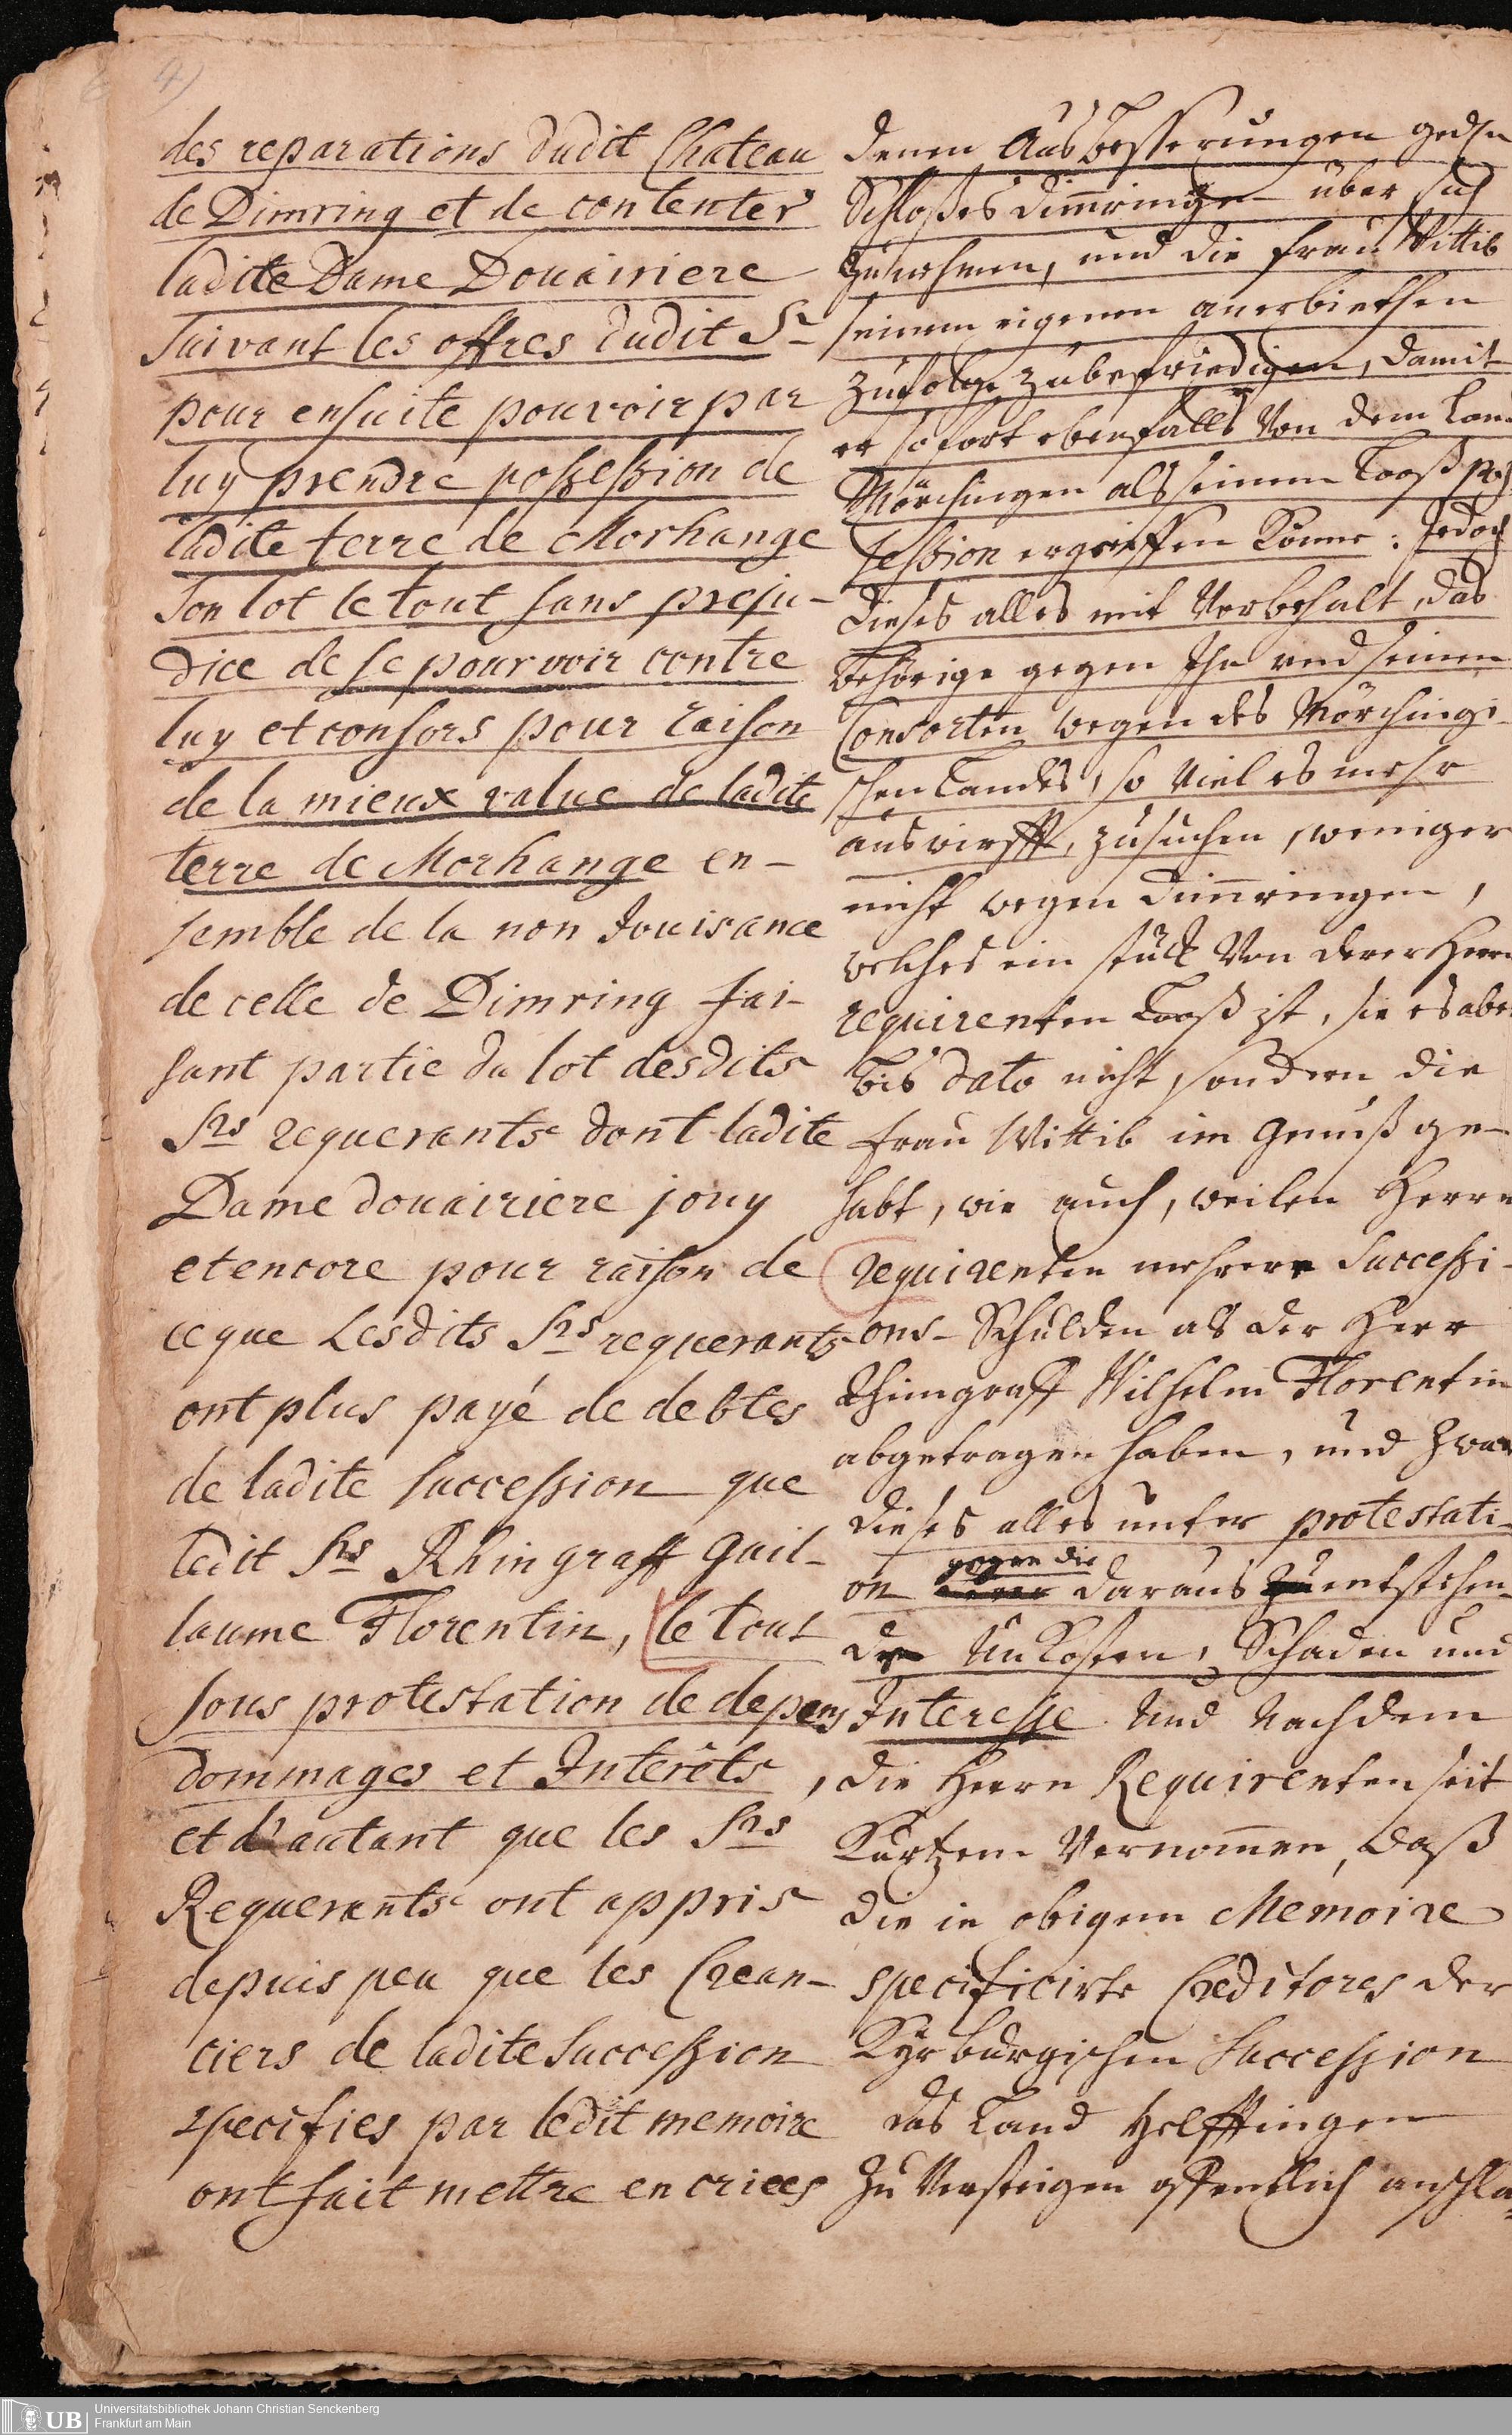 4)
des reparations dudit Chateau
de Dimring et de contenter
ladite Dame Douairiere
suivant les offres dudit Sr
pour ensuite pouvoir par
luy prendre possession de
ladite terre de Morhange
son lot le tout sans preju-
dice de se pourvoir contre
luy et consors pour raison
de la mieux value de ladite
terre de Morhange en-
semble de la non Jouisance
de celle de Dimring fai-
sant partie du lot desdits
Srs requerants dont ladite
Dame douairiere jouy
et encore pour raison de
ce que Lesdits Srs requerants
ont plus payé de debtes
de ladite succession que
ledit Srs Rhingraff Guil-
laume Florentin, le tout
sous protestation de depens
dommages et Interêts,
et d'autant que les Srs
Requerants ont appris
depuis peu que les Crean-
ciers de ladite Succession
specifies par ledit memoire
ont fait mettre en criees
denen Ausbesserungen gedn
Schloßes Dimringen über sich
zunehmen, und die Frau Wittib
seinem eigenen anerbiethen
zufolge zubefriedigen, damit
er sofort ebenfalls von dem Land
Mörchingen als seinem Looß pos
session ergreiffen könne: Jedoch
dieses alles mit Vorbehalt, das
behörige gegen Ihn und seinen
Consorten wegen des Mörchingi-
schen Landes, so viel es mehr
auswirfft, zusuchen, weniger
nicht wegen Dimringen,
welches ein stück von derer Herrn
requirenten Looß ist, sie es aber
bis dato nicht, sondern die
Frau Wittib im Genuß ge-
habt, wie auch, weilen Herrn
requirenten mehrere Successi-
ons-Schulden als der Herr
Rheingraff Wilhelm Florentin
abgetragen haben, und zwar
dieses alles unter protestati-
gegen die
on daraus entstehen-
de Unkosten, Schaden und
Interesse Und Nachdem
die Herrn Requirenten seit
Kurtzem Vernommen, daß
die in obigem Memoire
specificirte Creditores der
Kyrburgischen Succession
das Land Helffingen
zu Versteigen offentlich anschla-
UB
Universitätsbibliothek Johann Christian Senckenberg
Frankfurt am Main